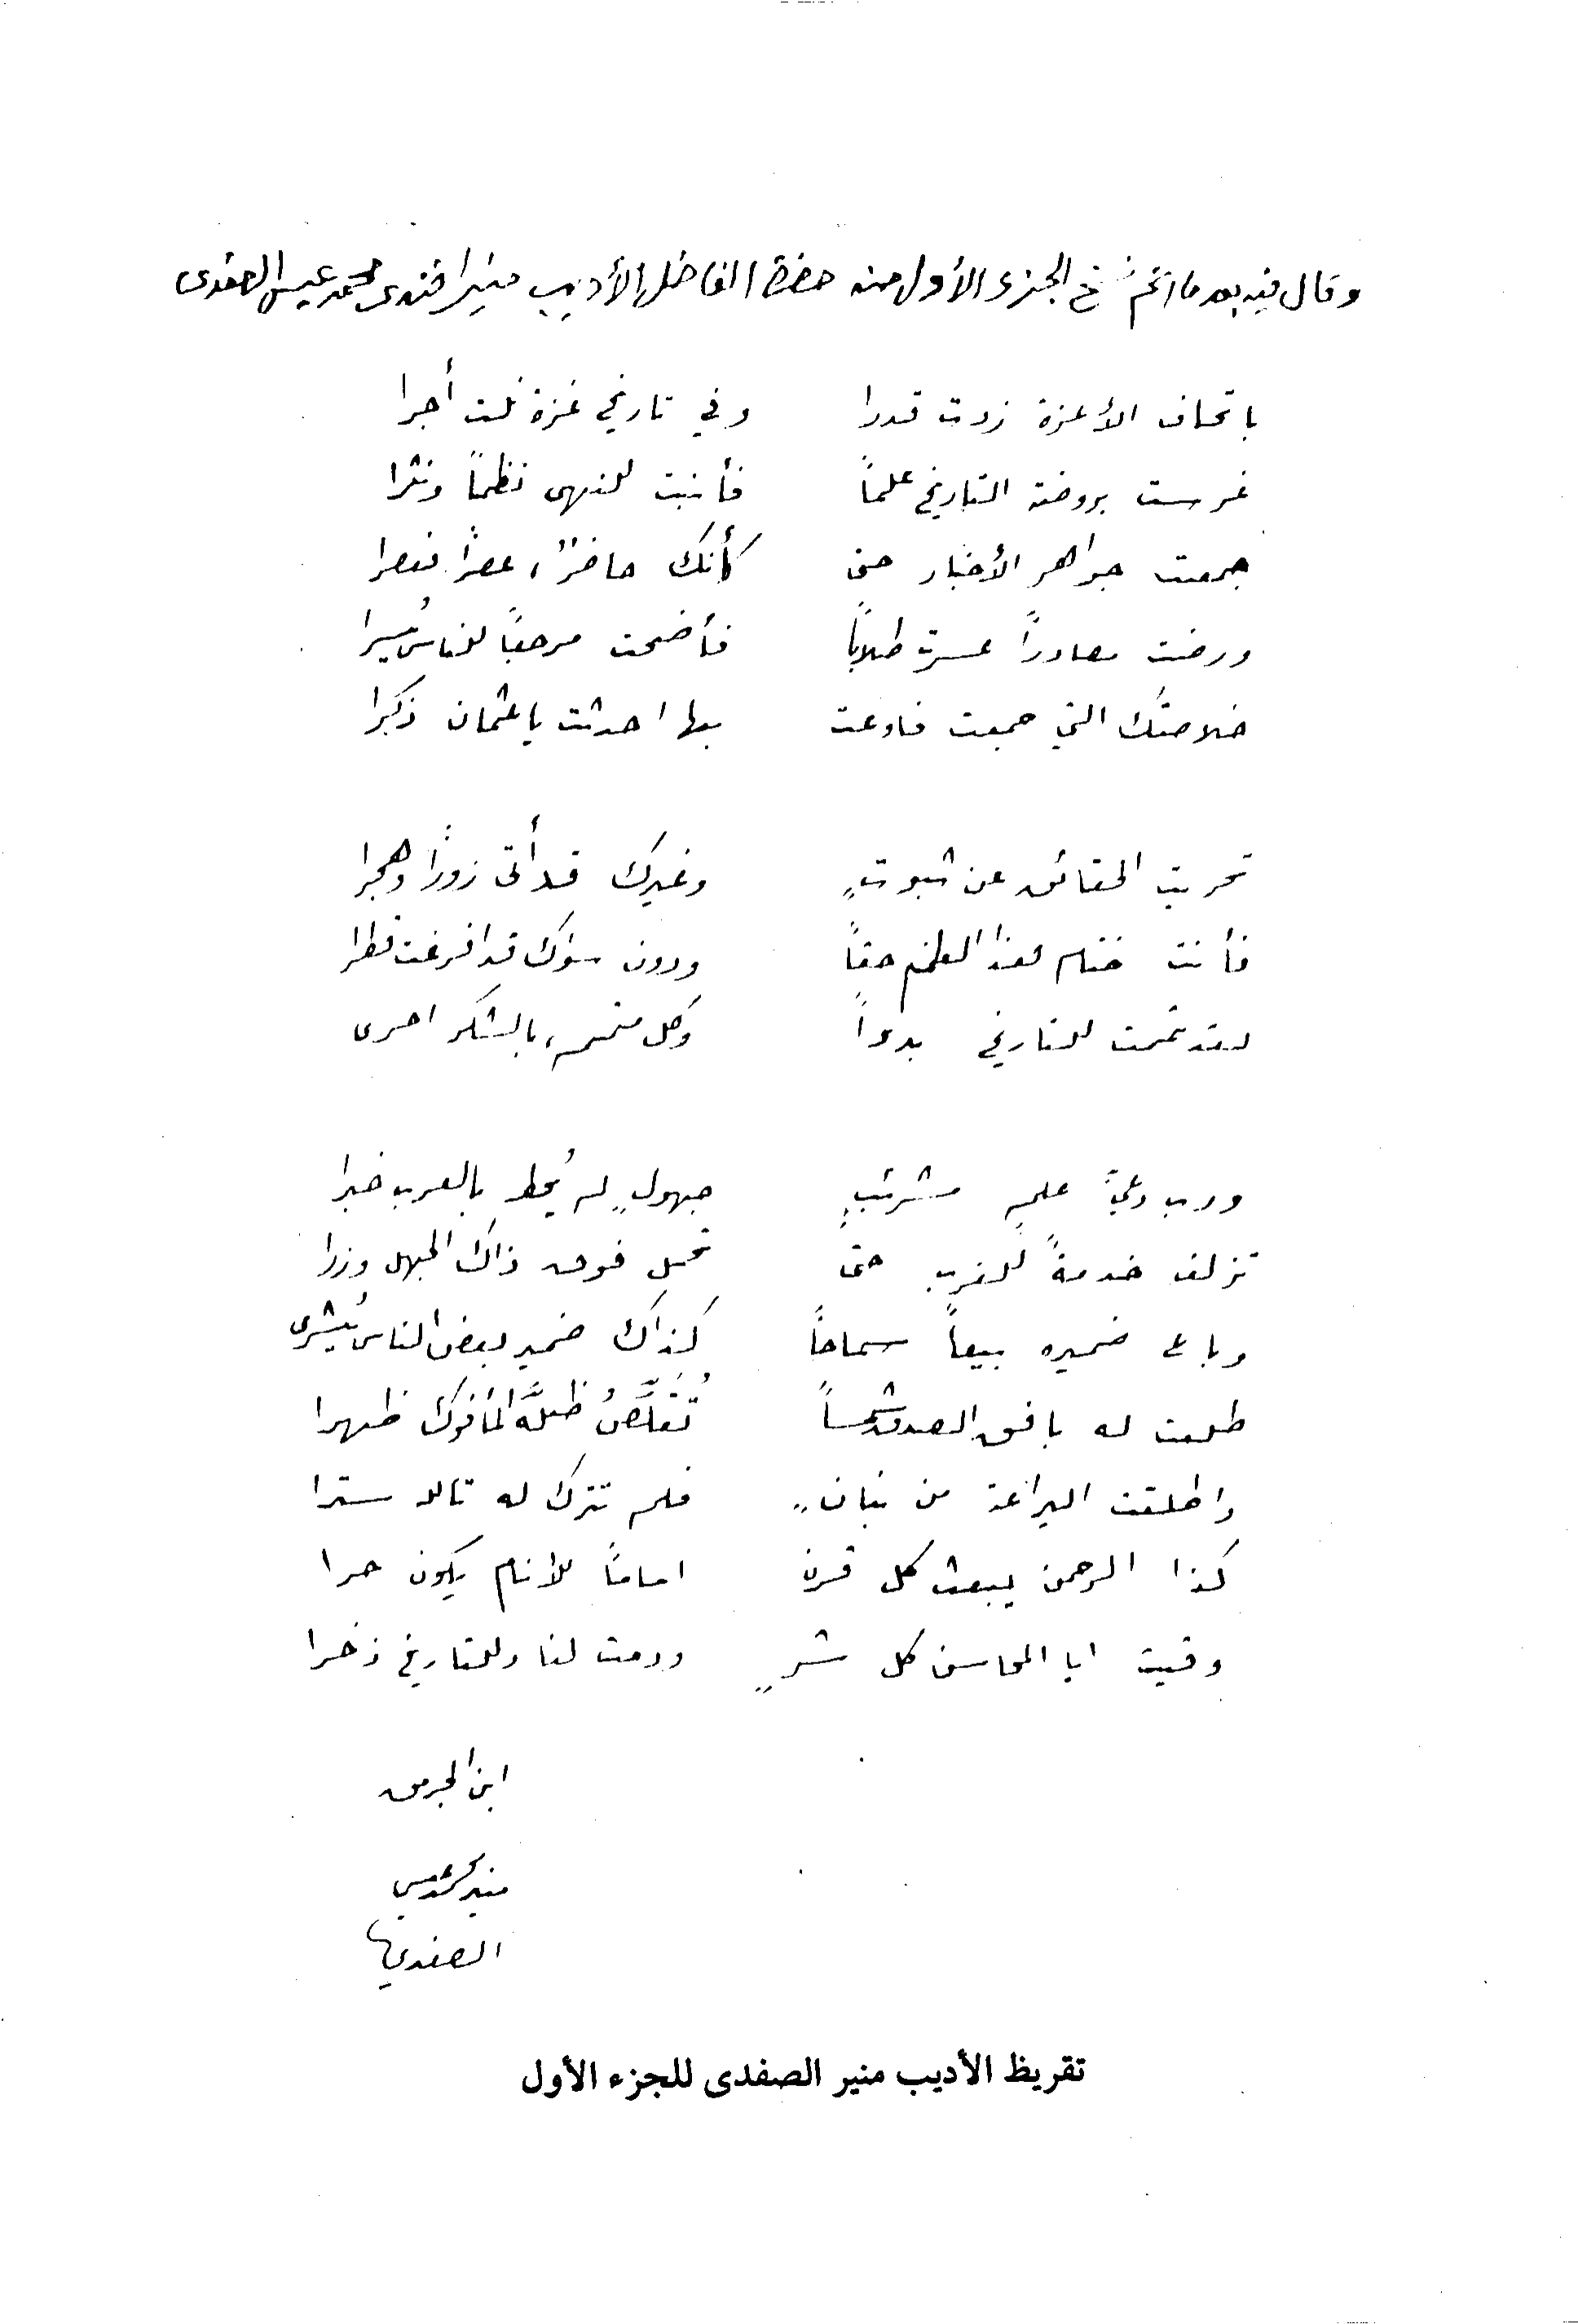 وقال فيه بعد ما اتم نسخ الجزء الأول منه حضرة الفاضل الأديب منير افندى محمد عيسى الصفدى
باتحاف الأعزة زدت قدرا وفي تاريخ غزة نلت أجرا
غرست بروضة التاريخ علماً فأنبت للنهى نظماً ونثرا
جمعت جواهر الأخبار حتى كأنك حاضرٌ، عصراً فعصرا
ورضت مصادراً عسرت طلاباً فأضحت مرجعاً للناس يُسرا
خلاصتك التي جمعت فاوعت بها احدثت يا عثمان ذكرا
تحريت الحقائق عن ثبوتٍ وغيرك قد أتى زوراً وهجرا
فأنت ختام هذا العلم حقاً ودون سواك قد افرغت قطرا
لقد تممت للتاريخ بدءاً وكل متمم، بالشكر احرى
ورب دعيِّ علمٍ مشرئبٍ جهولٍ لم يُحط بالعرب خبرا
تزلف خدمةً للغرب حتى تحمل فوق ذاك الجهل وزرا
وباع ضميره بيعاً سماحاً كذاك ضمير بعض الناس يُشرى
طلعت له بافق الصدق شمساً تُقلِّصُ ظلَّهُ المأفوك ظهرا
واطلقت اليراعة من بنانٍ فلم تترك له تالله سترا
كذا الرحمن يبعث كل قرن اماماً للأنام يكون حرا
وقيت ابا المحاسن كل شرٍ ودمت لنا وللتاريخ ذخرا
ابن الجرمق
منير محمد عيسى
الصفدي
تقريظ الأديب منير الصفدى للجزء الأول